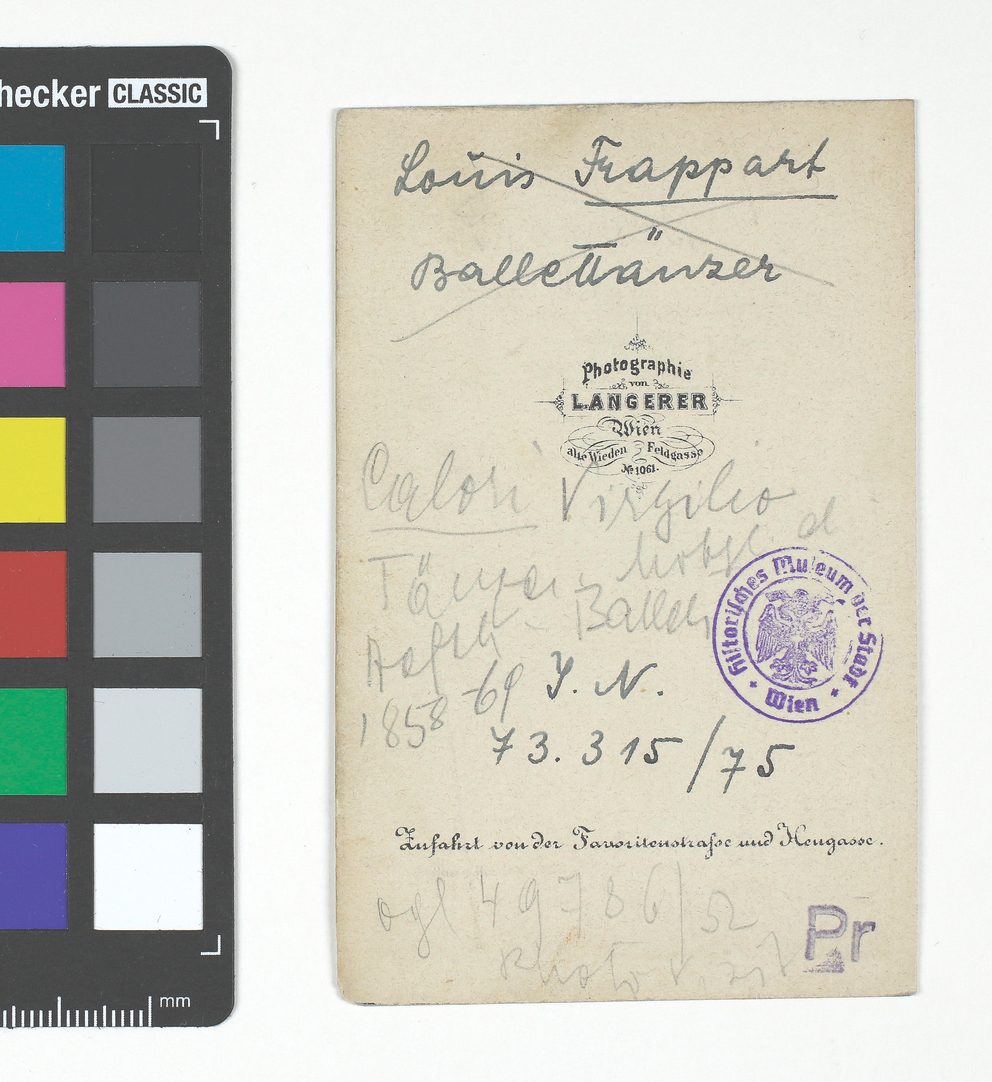 hecker CLASSIC
Louis Frappart
Ballettänzer
Photographie
von
L. ANGERER
Wien
alte Wieden Feldgasse
No 1061.
Calori Virgilio
Tänzer
Ballett
1858-69
J. N.
73.315/75
Historisches Museum der Stadt Wien
Zufahrt von der Favoritenstrasse und Heugasse.
ogl 49786/52
Photo v.
Pr
mm